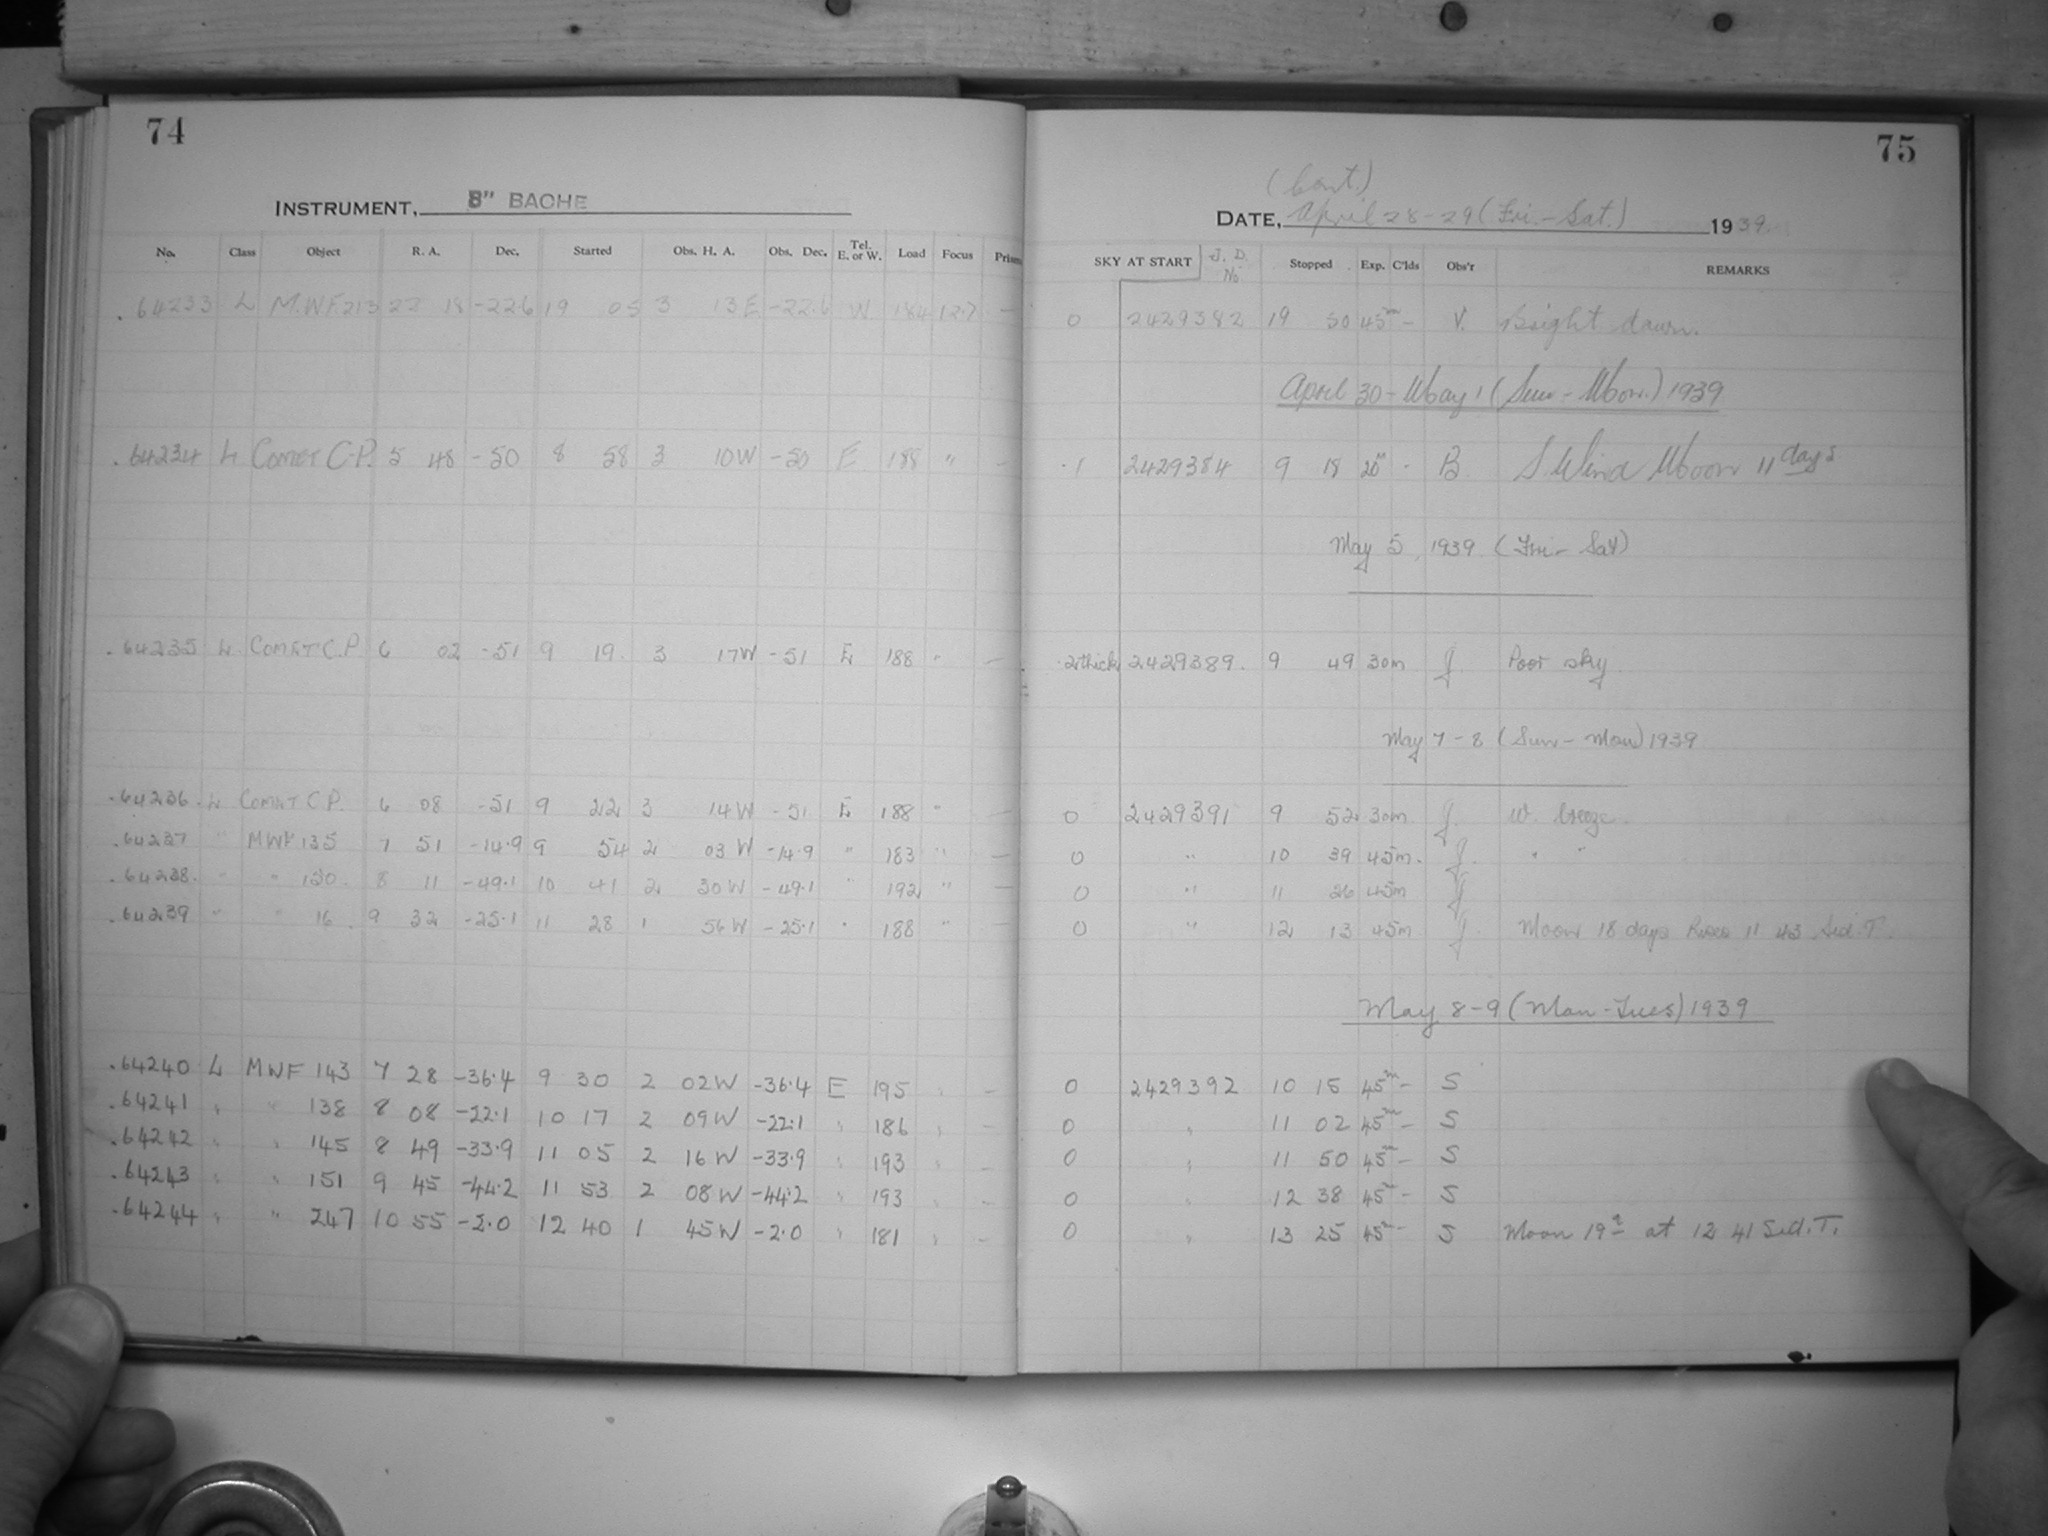 74
INSTRUMENT, 8" BACHE
No. Class Object R. A. Dec. Started Obs. H. A. Obs. Dec. Tel. E. or W. Load Focus Prism
.64233 L M.W.F. 213 22 18 -22.6 19 05 3 13 E -22.6 W. 184 12.7 —
.64234 L COMET C.P. 5 48 -50 8 58 3 10 W -50 E 188 " —
.64235 L COMET C.P. 6 02 -51 9 19. 3 17 W -51 E 188 " —
.64236 L COMET C.P. 6 08 -51 9 22 3 14 W -51 E 188 " —
.64237 " MWF 135 7 51 -14.9 9 54 2 03 W -14.9 " 183 " —
.64238. " " 130. 8 11 -49.1 10 41 2 30 W -49.1 " 192 " —
.64239 " " 16. 9 32 -25.1 11 28 1 56 W -25.1 " 188 "
.64240 L MWF 143 7 28 -36.4 9 30 2 02 W -36.4 E 195 " —
.64241 " " 138 8 08 -22.1 10 17 2 09 W -22.1 " 186 " —
.64242 " " 145 8 49 -33.9 11 05 2 16 W -33.9 " 193 " —
.64243 " " 151 9 45 -44.2 11 53 2 08 W -44.2 " 193 " —
.64244 " " 247 10 55 -2.0 12 40 1 45 W -2.0 " 181 " —
75
(Cont.)
DATE, April 28-29 (Fri.-Sat.) 1939
SKY AT START J. D. No Stopped Exp. C'lds Obs'r REMARKS
0 2429382 19 50 45m - V. Bright dawn.
April 30-May 1 (Sun-Mon.) 1939
.1 2429384 9 18 20m - B. S. Wind Moon 11 days
May 5, 1939 (Fri-Sat)
.2 thick 2429389. 9 49 30m J. Poor sky.
May 7-8 (Sun-Mon) 1939
0 2429391 9 52 30m J. W. breeze.
0 " 10 39 45m. J. " "
0 " 11 26 45m J
0 " 12 13 45m J. Moon 18 days Rises 11 43 Sid. T.
May 8-9 (Mon-Tues) 1939
0 2429392 10 15 45m - S
0 " 11 02 45m - S
0 " 11 50 45m - S
0 " 12 38 45m - S
0 " 13 25 45m - S Moon 19d at 12 41 Sid. T.